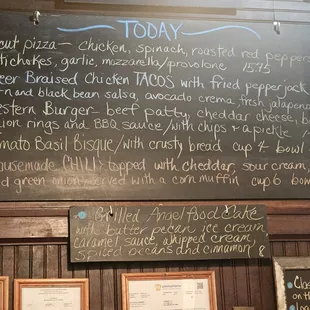 TODAY
cut pizza - chicken, spinach, roasted red peppers
tichokes, garlic, mozzarella/provolone 15.75
eer Braised Chicken TACOS with fried pepperjack
rn and black bean salsa, avocado crema, fresh jalapeno
estern Burger - beef patty, cheddar cheese, b
ion rings and BBQ sauce/with chips & a pickle
omato Basil Bisque/with crusty bread cup 4 bowl
ousemade CHILI: topped with cheddar, sour cream
d green onion served with a corn muffin cup 6 bow
Grilled Angel Food Cake
with butter pecan ice cream
caramel sauce, whipped cream,
spiced pecans and cinnamon
Clas
on